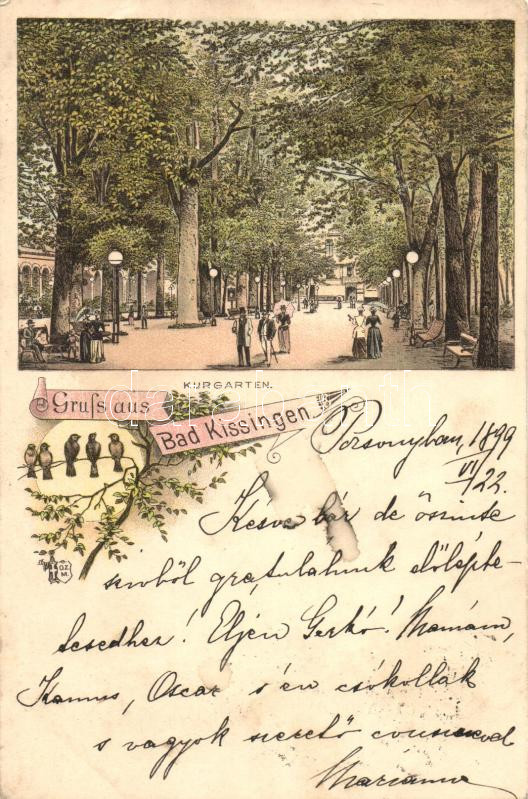 KURGARTEN.
Gruſs aus
Bad Kissingen.
Porsonyban, 1899
VI/22.
Késve bár de őszinte
szivből gratulálunk előlépte-
tésedhez! Éljen Gerkó! Mamám,
Oscar s én csókollak
s vagyok szerető
Marianne